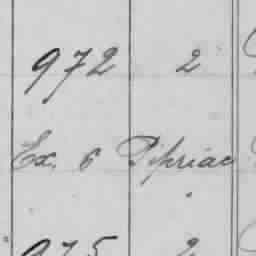 972 2
Ex. 6 Pipriac
975 2